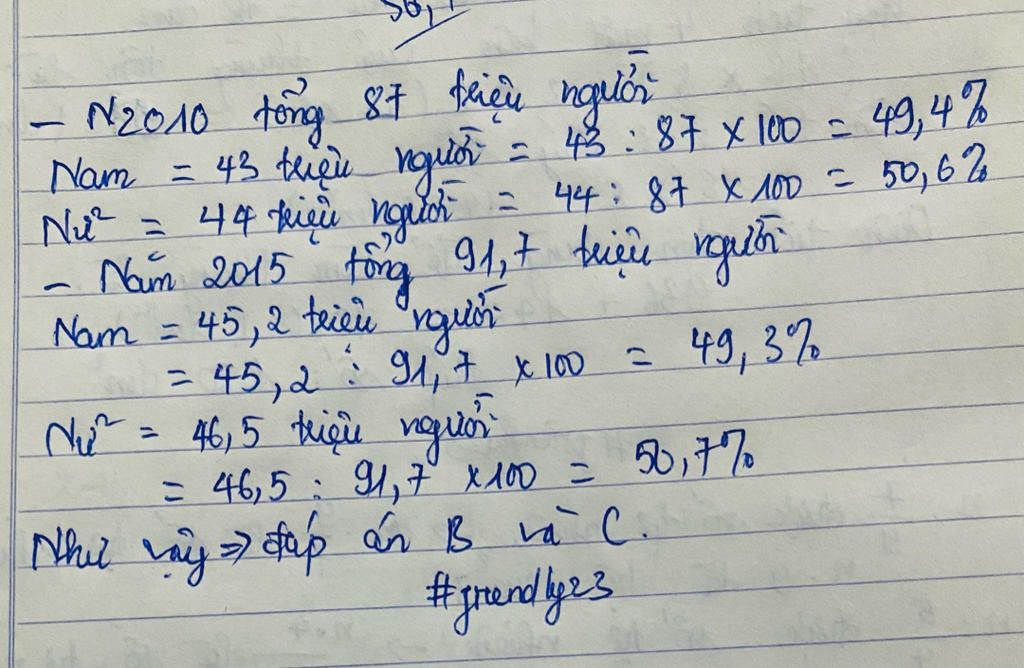 50,
- N2010 tổng 87 triệu người
Nam = 43 triệu người = 43 : 87 x 100 = 49,4%
Nữ = 44 triệu người = 44 : 87 x 100 = 50,6%
- Năm 2015 tổng 91,7 triệu người
Nam = 45,2 triệu người
= 45,2 : 91,7 x 100 = 49,3%
Nữ = 46,5 triệu người
= 46,5 : 91,7 x 100 = 50,7%
Như vậy => đáp án B và C.